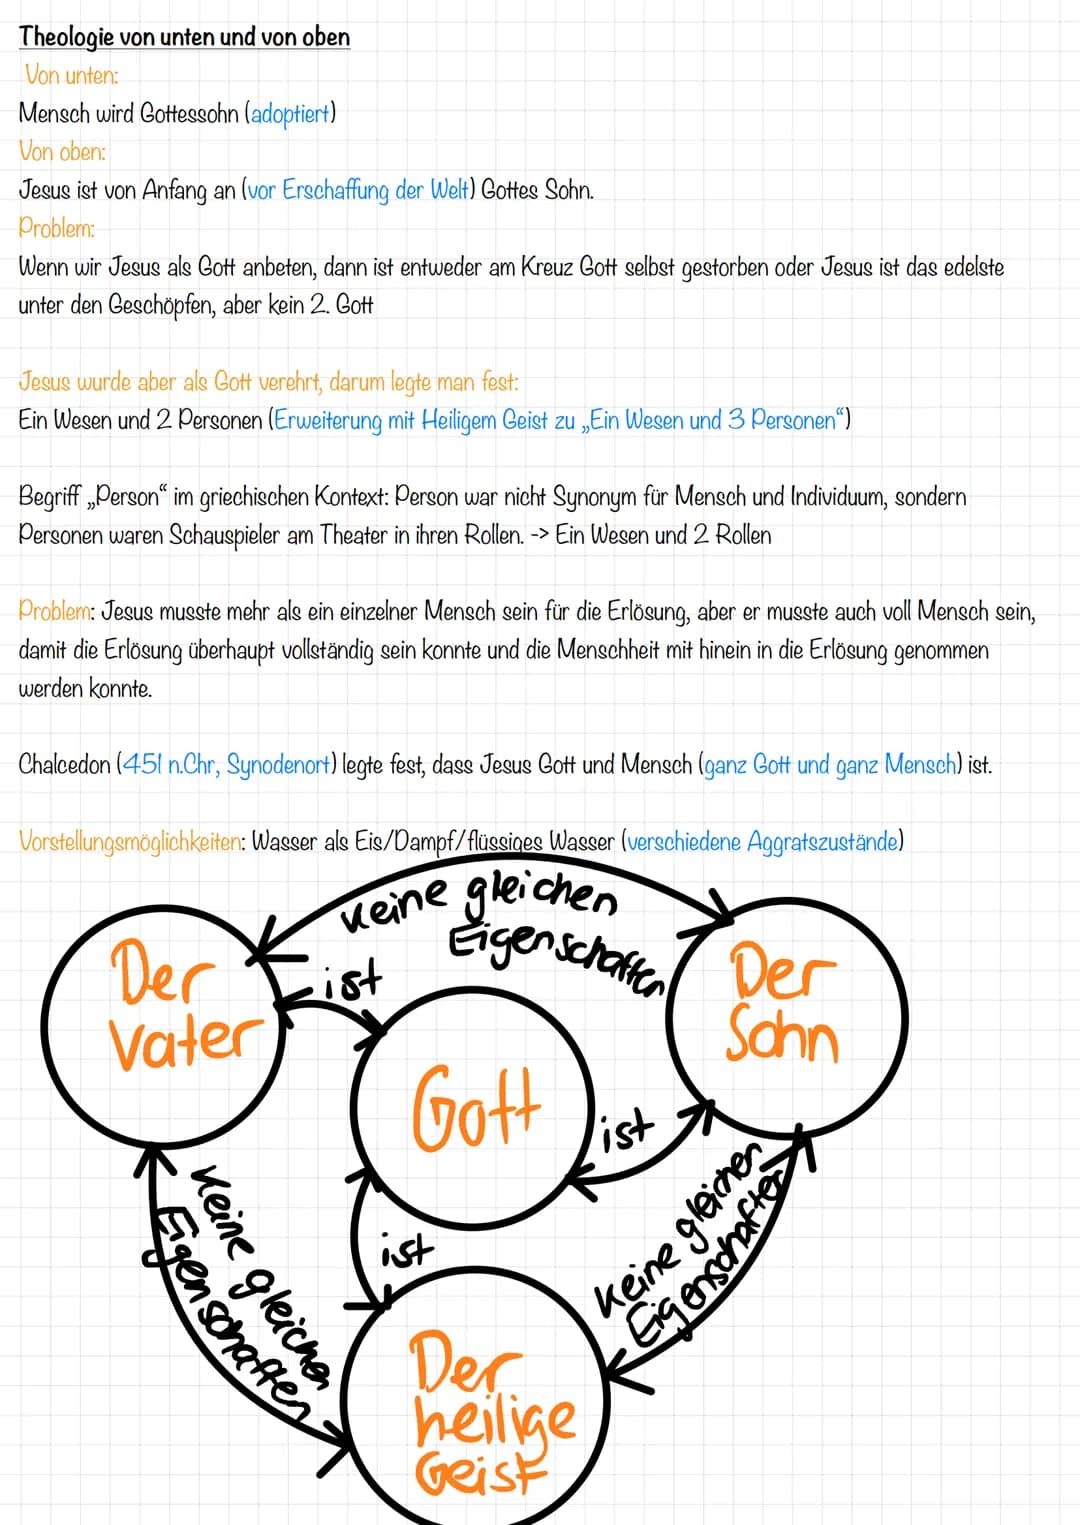 Theologie von unten und von oben
Von unten:
Mensch wird Gottessohn (adoptiert)
Von oben:
Jesus ist von Anfang an (vor Erschaffung der Welt) Gottes Sohn.
Problem:
Wenn wir Jesus als Gott anbeten, dann ist entweder am Kreuz Gott selbst gestorben oder Jesus ist das edelste
unter den Geschöpfen, aber kein 2. Gott
Jesus wurde aber als Gott verehrt, darum legte man fest:
Ein Wesen und 2 Personen (Erweiterung mit Heiligem Geist zu „Ein Wesen und 3 Personen“)
Begriff „Person“ im griechischen Kontext: Person war nicht Synonym für Mensch und Individuum, sondern
Personen waren Schauspieler am Theater in ihren Rollen. -> Ein Wesen und 2 Rollen
Problem: Jesus musste mehr als ein einzelner Mensch sein für die Erlösung, aber er musste auch voll Mensch sein,
damit die Erlösung überhaupt vollständig sein konnte und die Menschheit mit hinein in die Erlösung genommen
werden konnte.
Chalcedon (451 n.Chr, Synodenort) legte fest, dass Jesus Gott und Mensch (ganz Gott und ganz Mensch) ist.
Vorstellungsmöglichkeiten: Wasser als Eis/Dampf/flüssiges Wasser (verschiedene Aggratszustände)
keine gleichen
Eigenschaften
Der
Vater
ist
Der
Sohn
Gott
ist
keine gleichen
Eigenschaften
ist
keine gleichen
Eigenschaften
Der
heilige
Geist